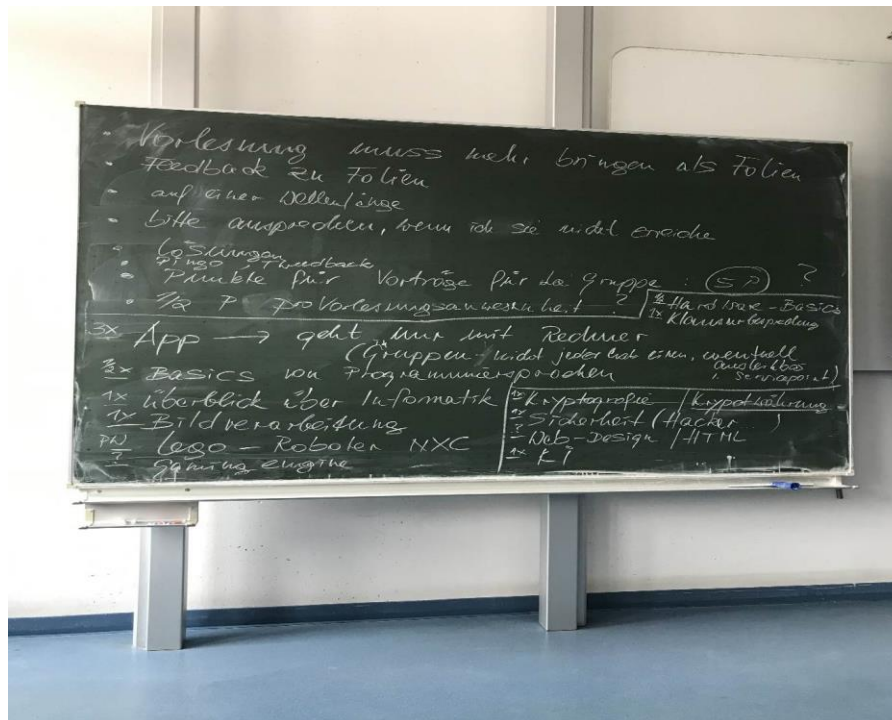 • Vorlesung muss mehr bringen als Folien
• Feedback zu Folien
• auf einer Wellenlänge
• bitte ansprechen, wenn ich sie nicht erreiche
• Lösungen
• Pingo, Threedback
• Punkte für Vorträge für die Gruppe: (5P) ?
• 1/2 P pro Vorlesungsanwesenheit ?
Hardware-Basics
1x Klausurbesprechung
3x App → geht nur mit Rechner
(Gruppen - nicht jeder hat einen, eventuell
ausleihbar
Servicepoint)
Basics von Programmiersprachen
1x Überblick über Informatik
1x Bildverarbeitung
Lego-Roboter NXC
? Gaming engine
1x Kryptografie / Kryptowährung
Sicherheit (Hacker...)
? Web-Design / HTML
1x KI